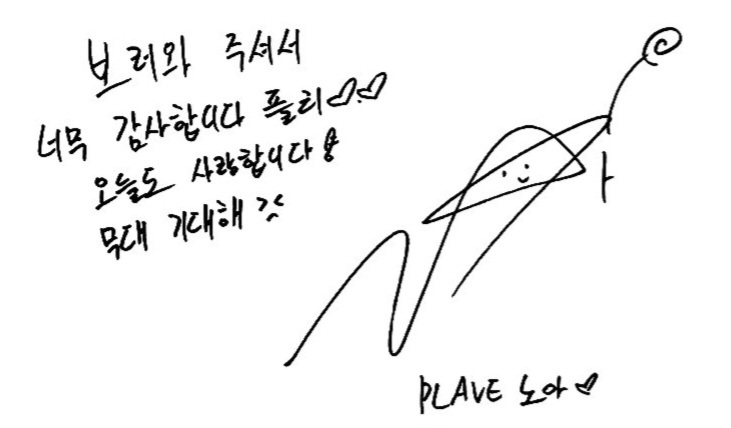 보러와 주셔서
너무 감사합니다 플리♡.♡
오늘도 사랑합니다
무대 기대해
PLAVE 노아♡